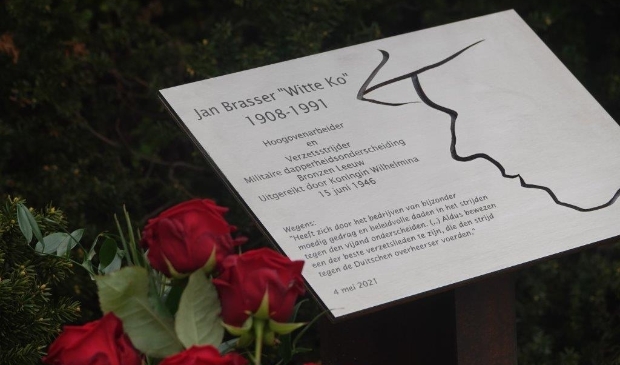 Jan Brasser "Witte Ko"
1908-1991
Hoogovenarbeider
en
Verzetsstrijder
Militaire dapperheidsonderscheiding
Bronzen Leeuw
Uitgereikt door Koningin Wilhelmina
15 juni 1946
Wegens:
"Heeft zich door het bedrijven van bijzonder
moedig gedrag en beleidvolle daden in het strijden
tegen den vijand onderscheiden. (..) Aldus bewezen
een der beste verzetslieden te zijn, die den strijd
tegen de Duitschen overheerser voerden."
4 mei 2021